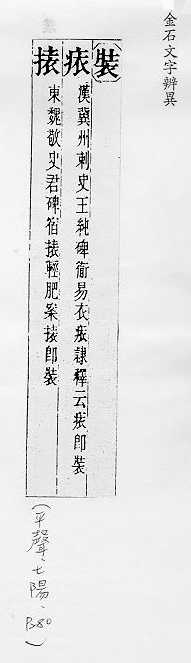 金石文字辨異
(裝)
漢冀州刺史王純碑衙易衣 隸釋云 即裝
東魏敬史君碑宿 輕肥案 即裝
(平聲、七陽、